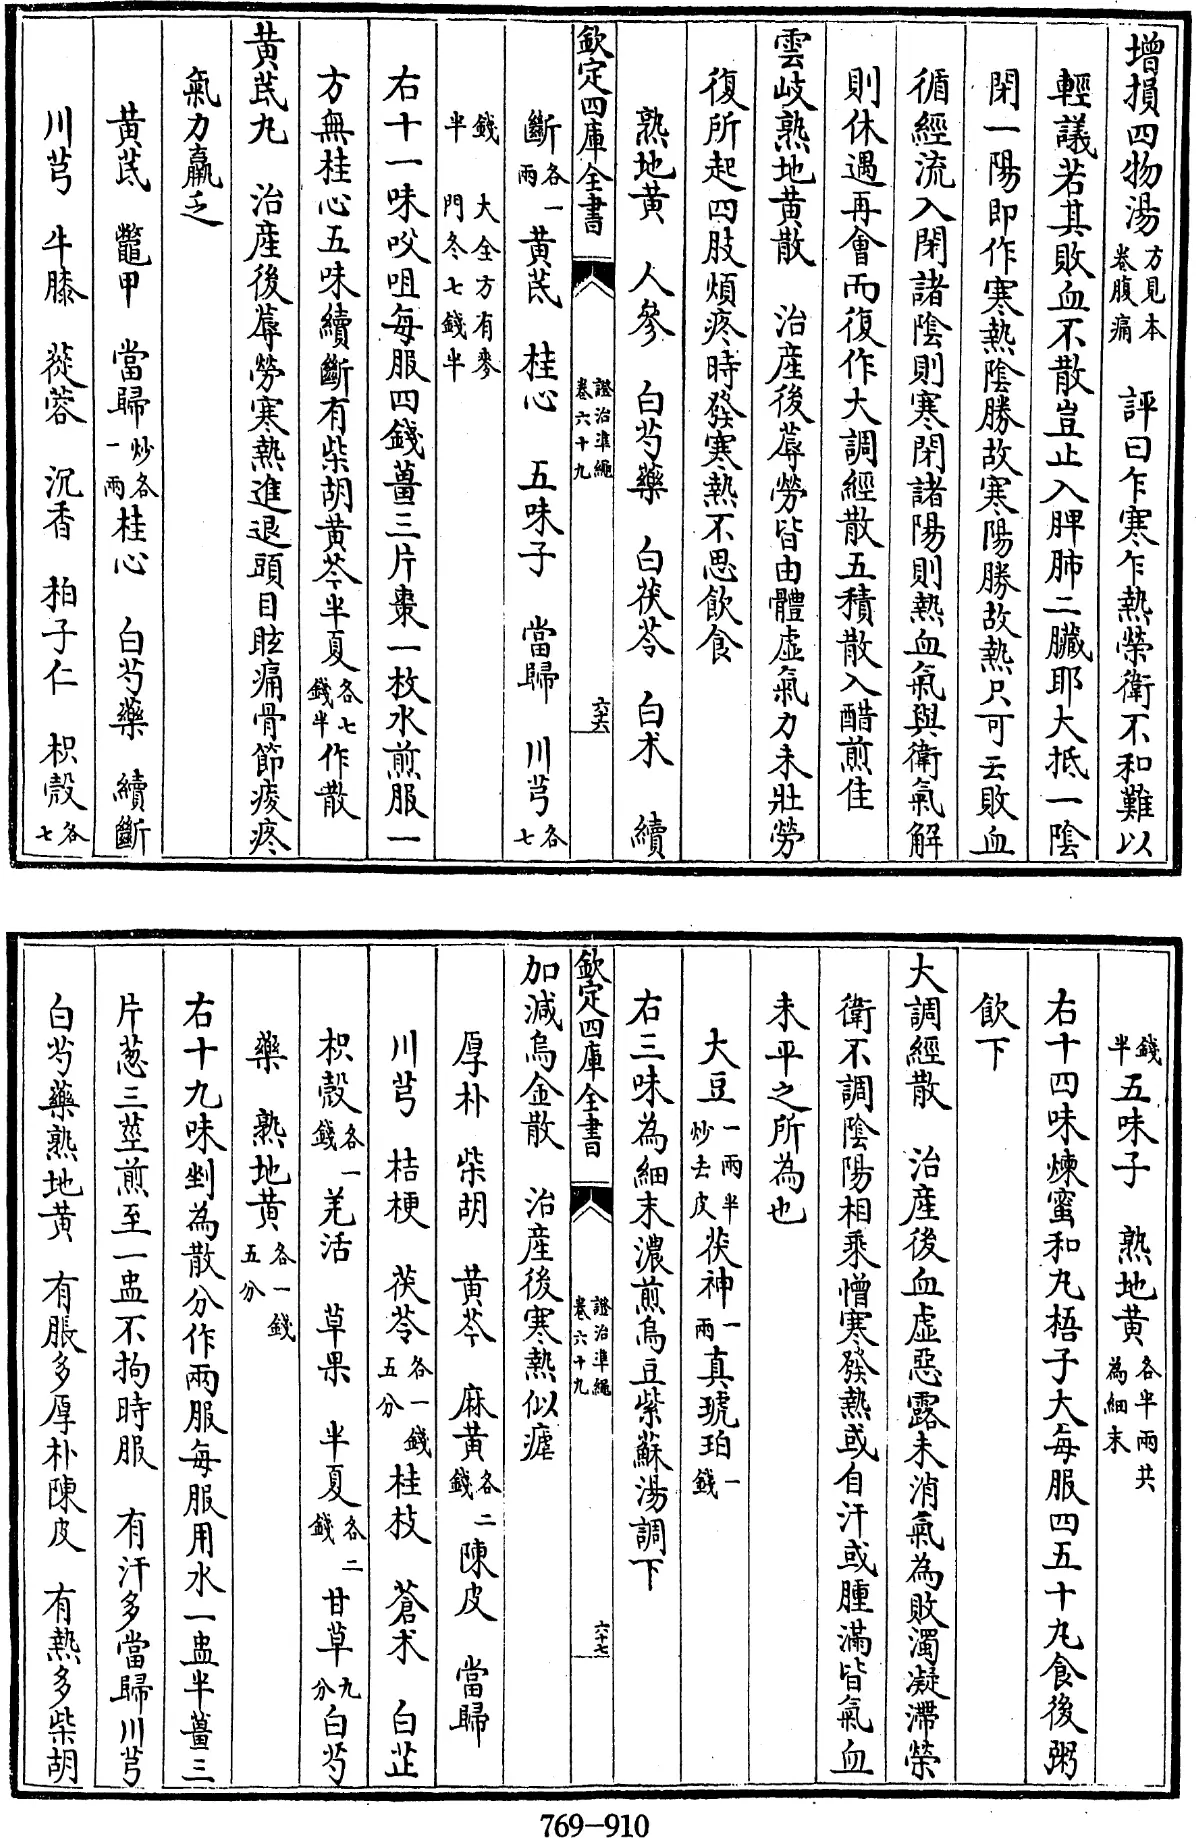 增損四物湯方見本卷腹痛　評曰乍寒乍熱榮衛不和難以
輕議若其敗血不散豈止入脾肺二臟耶大抵一陰
閉一陽即作寒熱陰勝故寒陽勝故熱只可云敗血
循經流入閉諸陰則寒閉諸陽則熱血氣與衛氣解
則休遇再會而復作大調經散五積散入醋煎佳
雲岐熟地黄散　治産後蓐勞皆由體虛氣力未壯勞
復所起四肢煩疼時發寒熱不思飲食
熟地黄　人參　白芍藥　白茯苓　白术　續
欽定四庫全書　證治準繩卷六十九　六六
斷各一兩黄芪　桂心　五味子　當歸　川芎各七
錢半　大全方有麥門冬七錢半
右十一味㕮咀每服四錢薑三片棗一枚水煎服一
方無桂心五味續斷有柴胡黄芩半夏各七錢半作散
黄芪丸　治産後蓐勞寒熱進退頭目眩痛骨節痠疼
氣力羸乏
黄芪　鼈甲　當歸炒各一兩桂心　白芍藥　續斷
川芎　牛膝　蓯蓉　沉香　柏子仁　枳殼各七
錢半五味子　熟地黄各半兩共為細末
右十四味煉蜜和丸梧子大每服四五十丸食後粥
飲下
大調經散　治産後血虛惡露未消氣為敗濁凝滯榮
衛不調陰陽相乘憎寒發熱或自汗或腫滿皆氣血
未平之所為也
大豆一兩半炒去皮茯神一兩真琥珀一錢
右三味為細末濃煎烏豆紫蘇湯調下
欽定四庫全書　證治準繩卷六十九　六十七
加減烏金散　治産後寒熱似瘧
厚朴　柴胡　黄芩　麻黄各二錢陳皮　當歸
川芎　桔梗　茯苓各一錢五分桂枝　蒼术　白芷
枳殼各一錢羌活　草果　半夏各二錢甘草九分白芍
藥　熟地黄各一錢五分
右十九味剉為散分作兩服每服用水一盅半薑三
片葱三莖煎至一盅不拘時服　有汗多當歸川芎
白芍藥熟地黄　有脹多厚朴陳皮　有熱多柴胡
769-910